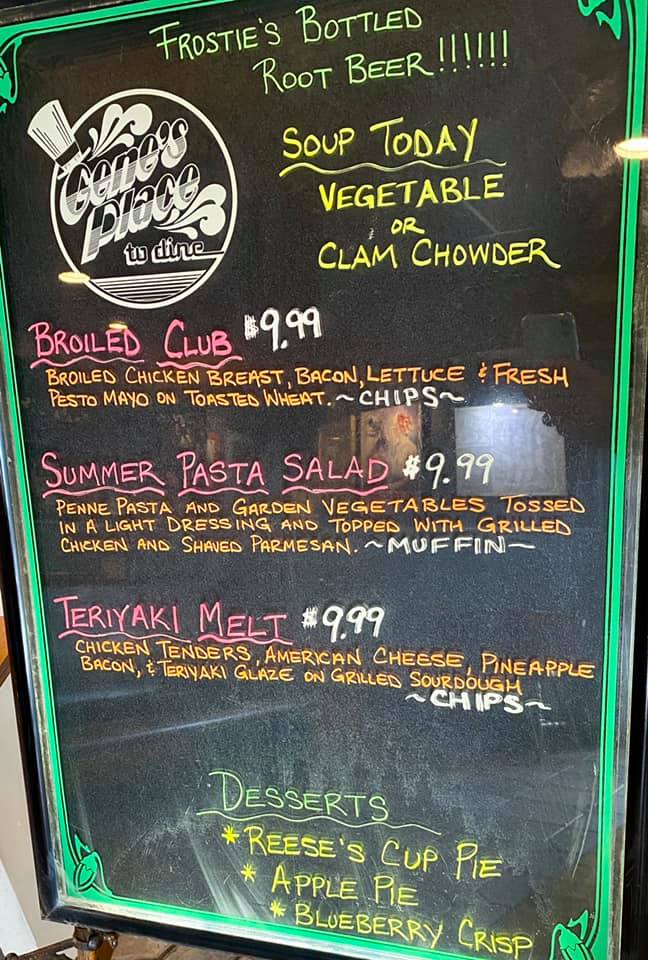 FROSTIE'S BOTTLED
ROOT BEER!!!!!!
Gene's
Place
to dine
SOUP TODAY
VEGETABLE
OR
CLAM CHOWDER
BROILED CLUB $9.99
BROILED CHICKEN BREAST, BACON, LETTUCE & FRESH
PESTO MAYO ON TOASTED WHEAT. ~CHIPS~
SUMMER PASTA SALAD $9.99
PENNE PASTA AND GARDEN VEGETABLES TOSSED
IN A LIGHT DRESSING AND TOPPED WITH GRILLED
CHICKEN AND SHAVED PARMESAN. ~MUFFIN~
TERIYAKI MELT $9.99
CHICKEN TENDERS, AMERICAN CHEESE, PINEAPPLE
BACON, & TERIYAKI GLAZE ON GRILLED SOURDOUGH
~CHIPS~
DESSERTS
* REESE'S CUP PIE
* APPLE PIE
* BLUEBERRY CRISP